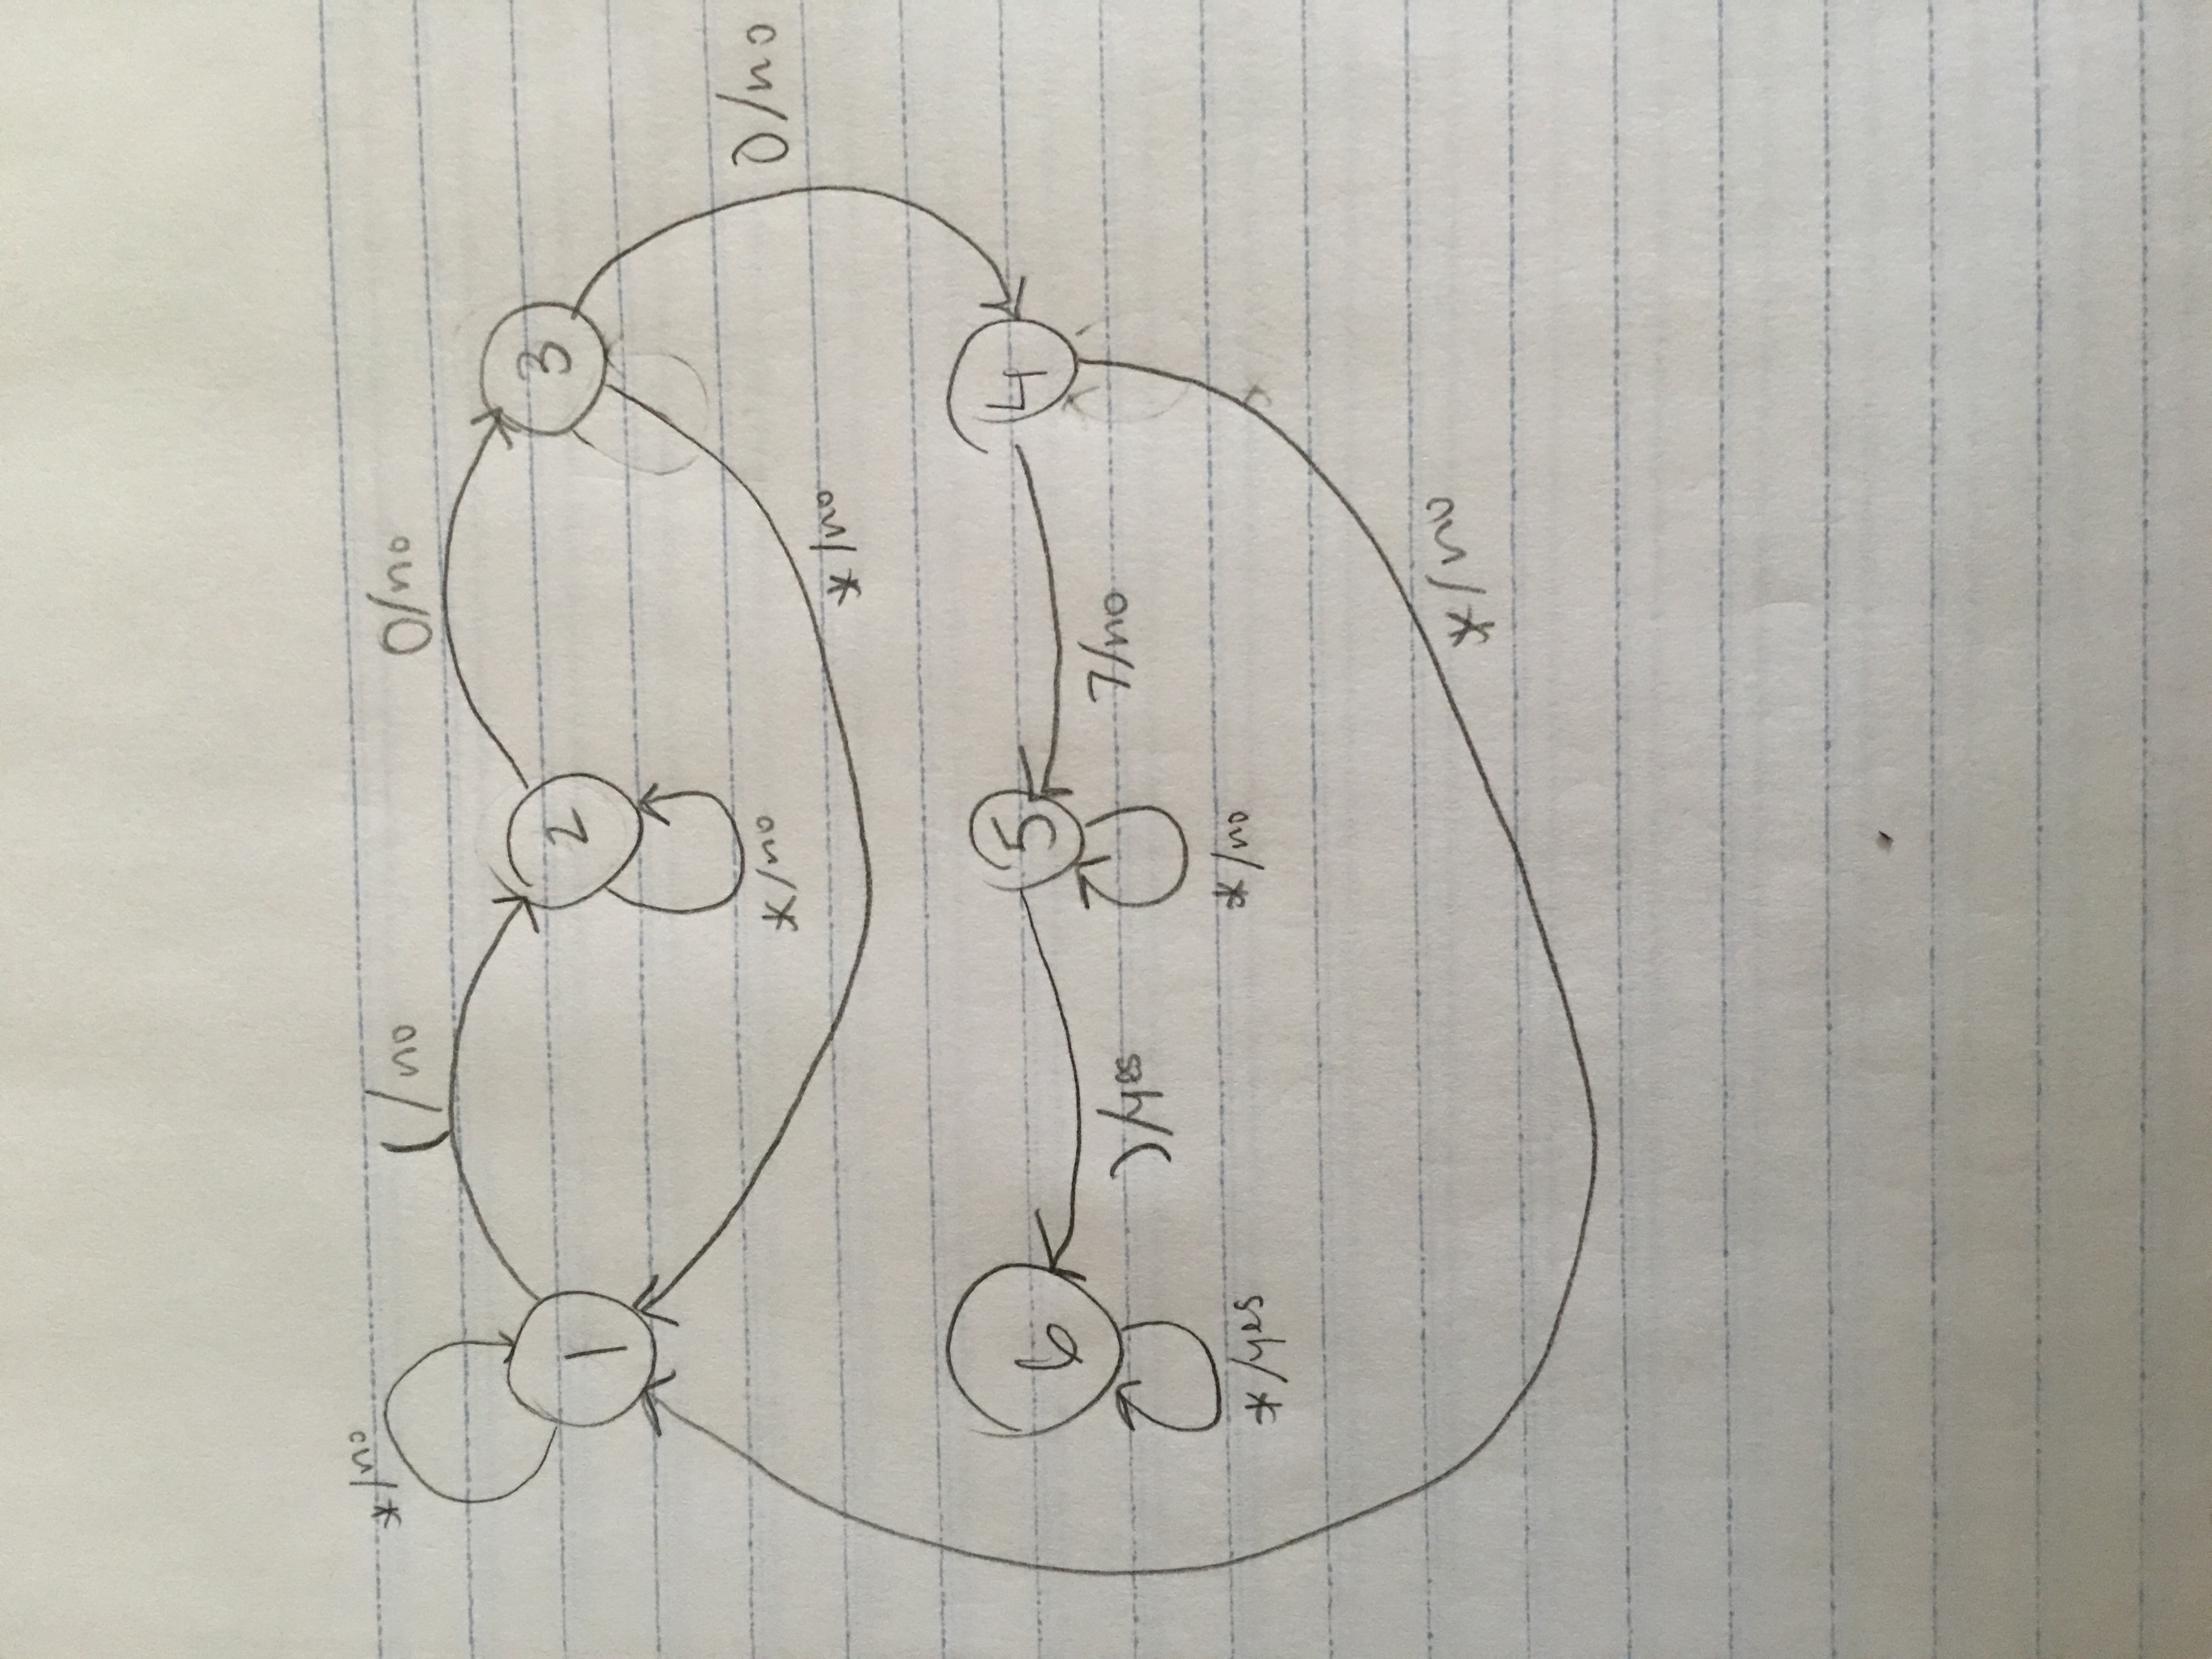 */no
(/no
0/no
1
2
3
*/no
0/no
*/no
6
5
4
)/yes
7/no
*/yes
*/no
*/no